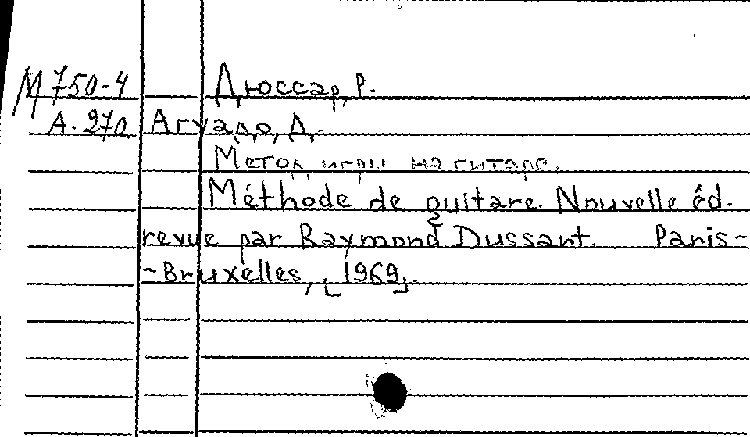 М750-4 Дюссар, Р.
А.270 Агуадо, Д.
Метод игры на гитаре.
Méthode de guitare. Nouvelle éd.
revue par Raymond Dussart. Paris-
-Bruxelles, [1969].